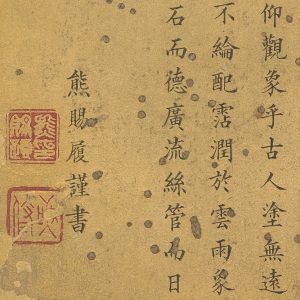 仰觀象乎古人塗無遠
不綸配霑潤於雲雨象
石而德廣流絲管而日
熊賜履謹書